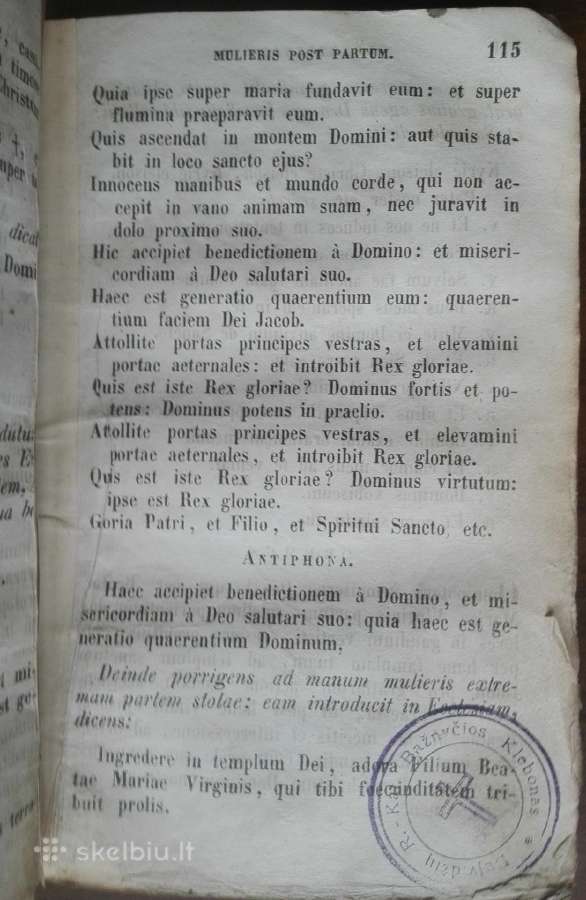 MULIERIS POST PARTUM. 115
Quia ipse super maria fundavit eum: et super
flumina praeparavit eum.
Quis ascendat in montem Domini: aut quis sta-
bit in loco sancto ejus?
Innocens manibus et mundo corde, qui non ac-
cepit in vano animam suam, nec juravit in
dolo proximo suo.
Hic accipiet benedictionem à Domino: et miseri-
cordiam à Deo salutari suo.
Haec est generatio quaerentium eum: quaeren-
tium faciem Dei Jacob.
Attollite portas principes vestras, et elevamini
portae aeternales: et introibit Rex gloriae.
Quis est iste Rex gloriae? Dominus fortis et po-
tens: Dominus potens in praelio.
Attollite portas principes vestras, et elevamini
portae aeternales, et introibit Rex gloriae.
Quis est iste Rex gloriae? Dominus virtutum:
ipse est Rex gloriae.
Gloria Patri, et Filio, et Spiritui Sancto, etc.
ANTIPHONA.
Haec accipiet benedictionem à Domino, et mi-
sericordiam à Deo salutari suo: quia haec est ge-
neratio quaerentium Dominum.
Deinde porrigens ad manum mulieris extre-
mam partem stolae: eam introducit in Ecclesiam,
dicens:
Ingredere in templum Dei, adora Filium Bea-
tae Mariae Virginis, qui tibi foecunditatem tri-
buit prolis.
R.-Kat. Bažnyčios Klebonas
skelbiu.lt